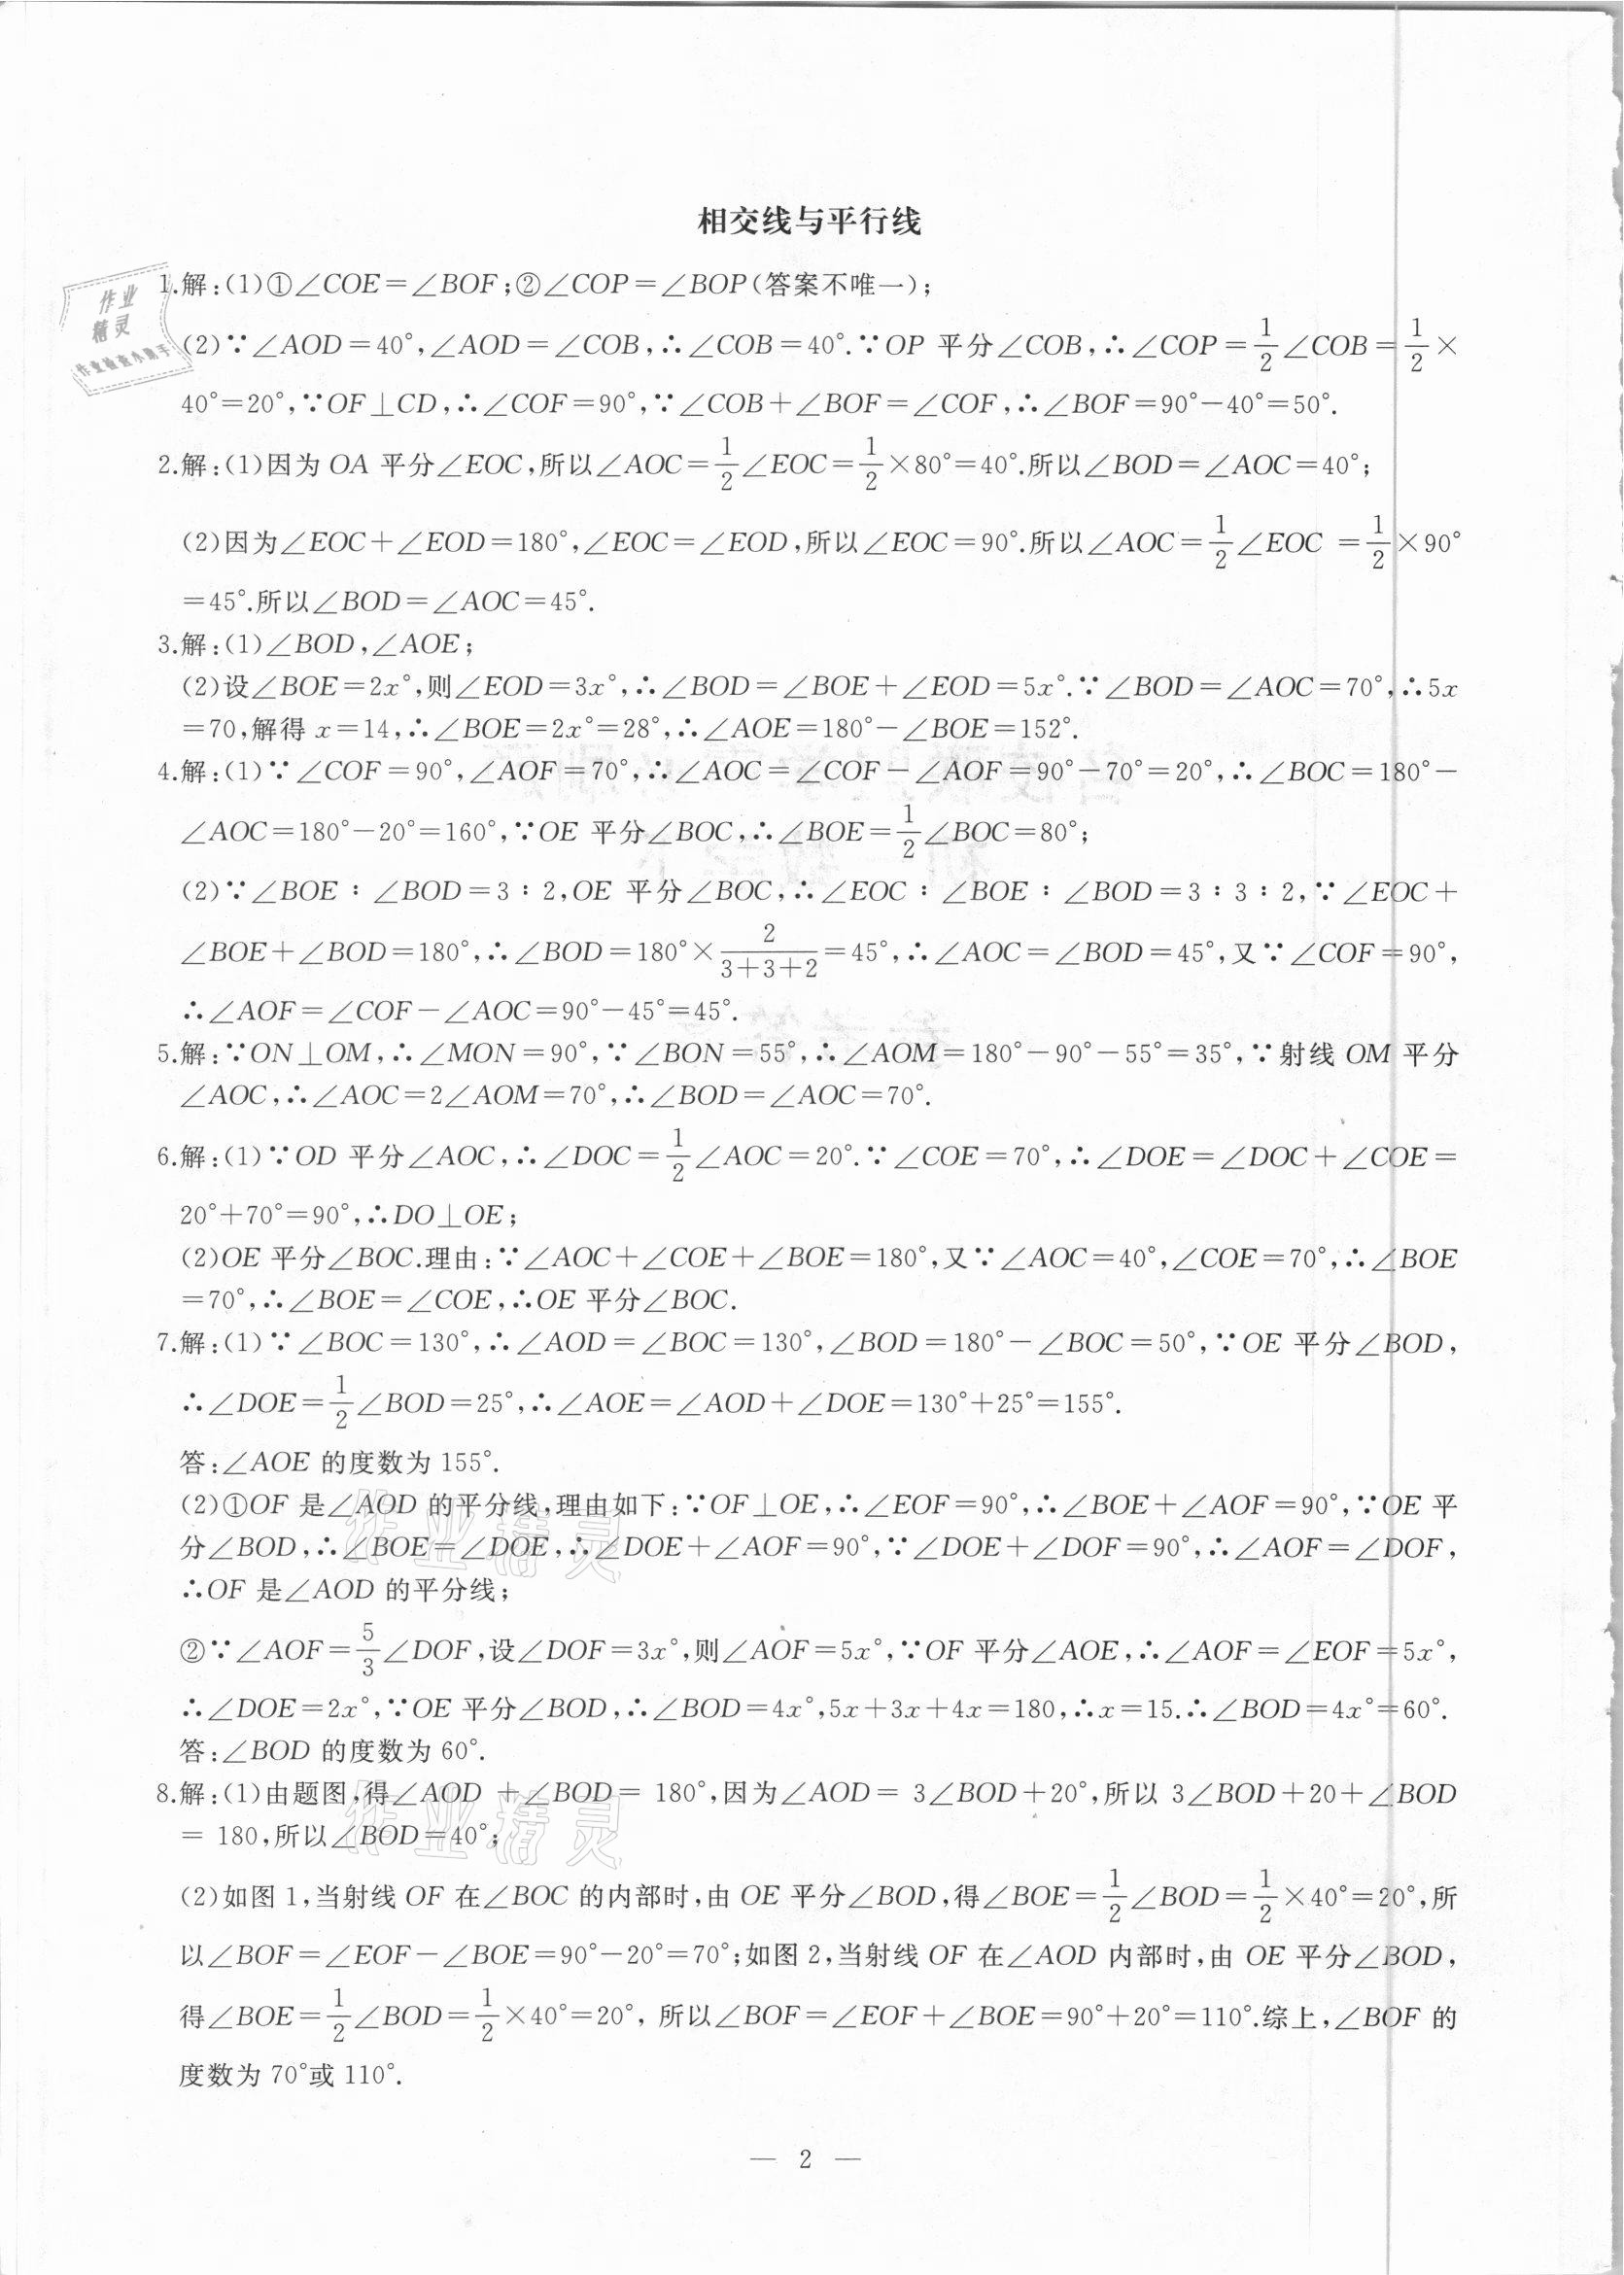 相交线与平行线
1.解:(1)①∠COE=∠BOF;②∠COP=∠BOP(答案不唯一);
作业
精灵
(2)∵∠AOD=40°,∠AOD=∠COB,∴∠COB=40°.∵OP 平分∠COB,∴∠COP=1/2∠COB=1/2×
40°=20°,∵OF⊥CD,∴∠COF=90°,∵∠COB+∠BOF=∠COF,∴∠BOF=90°-40°=50°.
2.解:(1)因为 OA 平分∠EOC,所以∠AOC=1/2∠EOC=1/2×80°=40°.所以∠BOD=∠AOC=40°;
(2)因为∠EOC+∠EOD=180°,∠EOC=∠EOD,所以∠EOC=90°.所以∠AOC=1/2∠EOC =1/2×90°
=45°.所以∠BOD=∠AOC=45°.
3.解:(1)∠BOD,∠AOE;
(2)设∠BOE=2x°,则∠EOD=3x°,∴∠BOD=∠BOE+∠EOD=5x°.∵∠BOD=∠AOC=70°,∴5x
=70,解得 x=14,∴∠BOE=2x°=28°,∴∠AOE=180°-∠BOE=152°.
4.解:(1)∵∠COF=90°,∠AOF=70°,∴∠AOC=∠COF-∠AOF=90°-70°=20°,∴∠BOC=180°-
∠AOC=180°-20°=160°,∵OE 平分∠BOC,∴∠BOE=1/2∠BOC=80°;
(2)∵∠BOE:∠BOD=3:2,OE 平分∠BOC,∴∠EOC:∠BOE:∠BOD=3:3:2,∵∠EOC+
∠BOE+∠BOD=180°,∴∠BOD=180°×2/(3+3+2)=45°,∴∠AOC=∠BOD=45°,又∵∠COF=90°,
∴∠AOF=∠COF-∠AOC=90°-45°=45°.
5.解:∵ON⊥OM,∴∠MON=90°,∵∠BON=55°,∴∠AOM=180°-90°-55°=35°,∵射线 OM 平分
∠AOC,∴∠AOC=2∠AOM=70°,∴∠BOD=∠AOC=70°.
6.解:(1)∵OD 平分∠AOC,∴∠DOC=1/2∠AOC=20°.∵∠COE=70°,∴∠DOE=∠DOC+∠COE=
20°+70°=90°,∴DO⊥OE;
(2)OE 平分∠BOC.理由:∵∠AOC+∠COE+∠BOE=180°,又∵∠AOC=40°,∠COE=70°,∴∠BOE
=70°,∴∠BOE=∠COE,∴OE 平分∠BOC.
7.解:(1)∵∠BOC=130°,∴∠AOD=∠BOC=130°,∠BOD=180°-∠BOC=50°,∵OE 平分∠BOD,
∴∠DOE=1/2∠BOD=25°,∴∠AOE=∠AOD+∠DOE=130°+25°=155°.
答:∠AOE 的度数为 155°.
(2)①OF 是∠AOD 的平分线,理由如下:∵OF⊥OE,∴∠EOF=90°,∴∠BOE+∠AOF=90°,∵OE 平
分∠BOD,∴∠BOE=∠DOE,∴∠DOE+∠AOF=90°,∵∠DOE+∠DOF=90°,∴∠AOF=∠DOF,
作业精灵
∴OF 是∠AOD 的平分线;
②∵∠AOF=5/3∠DOF,设∠DOF=3x°,则∠AOF=5x°,∵OF 平分∠AOE,∴∠AOF=∠EOF=5x°,
∴∠DOE=2x°,∵OE 平分∠BOD,∴∠BOD=4x°,5x+3x+4x=180,∴x=15.∴∠BOD=4x°=60°.
答:∠BOD 的度数为 60°.
8.解:(1)由题图,得∠AOD +∠BOD= 180°,因为∠AOD= 3∠BOD+20°,所以 3∠BOD+20+∠BOD
= 180,所以∠BOD=40°;
作业精灵
(2)如图 1,当射线 OF 在∠BOC 的内部时,由 OE 平分∠BOD,得∠BOE=1/2∠BOD=1/2×40°=20°,所
以∠BOF=∠EOF-∠BOE=90°-20°=70°;如图 2,当射线 OF 在∠AOD 内部时,由 OE 平分∠BOD,
得∠BOE=1/2∠BOD=1/2×40°=20°, 所以∠BOF=∠EOF+∠BOE=90°+20°=110°.综上,∠BOF 的
度数为 70°或 110°.
— 2 —